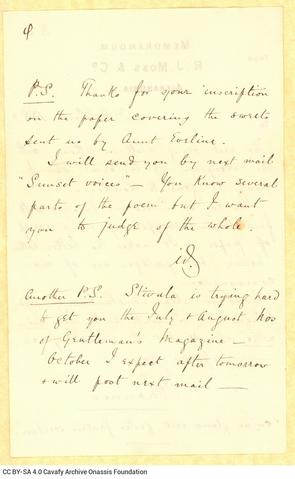 4
P.S. Thanks for your inscription
on the paper covering the sweets
sent us by Aunt Eveline.
I will send you by next mail
"Sunset voices" — You know several
parts of the poem but I want
you to judge of the whole.
id
Another P.S. Stivala is trying hard
to get you the July & August Nos
of Gentleman's Magazine —
October I expect after tomorrow
& will post next mail —
CC BY-SA 4.0 Cavafy Archive Onassis Foundation